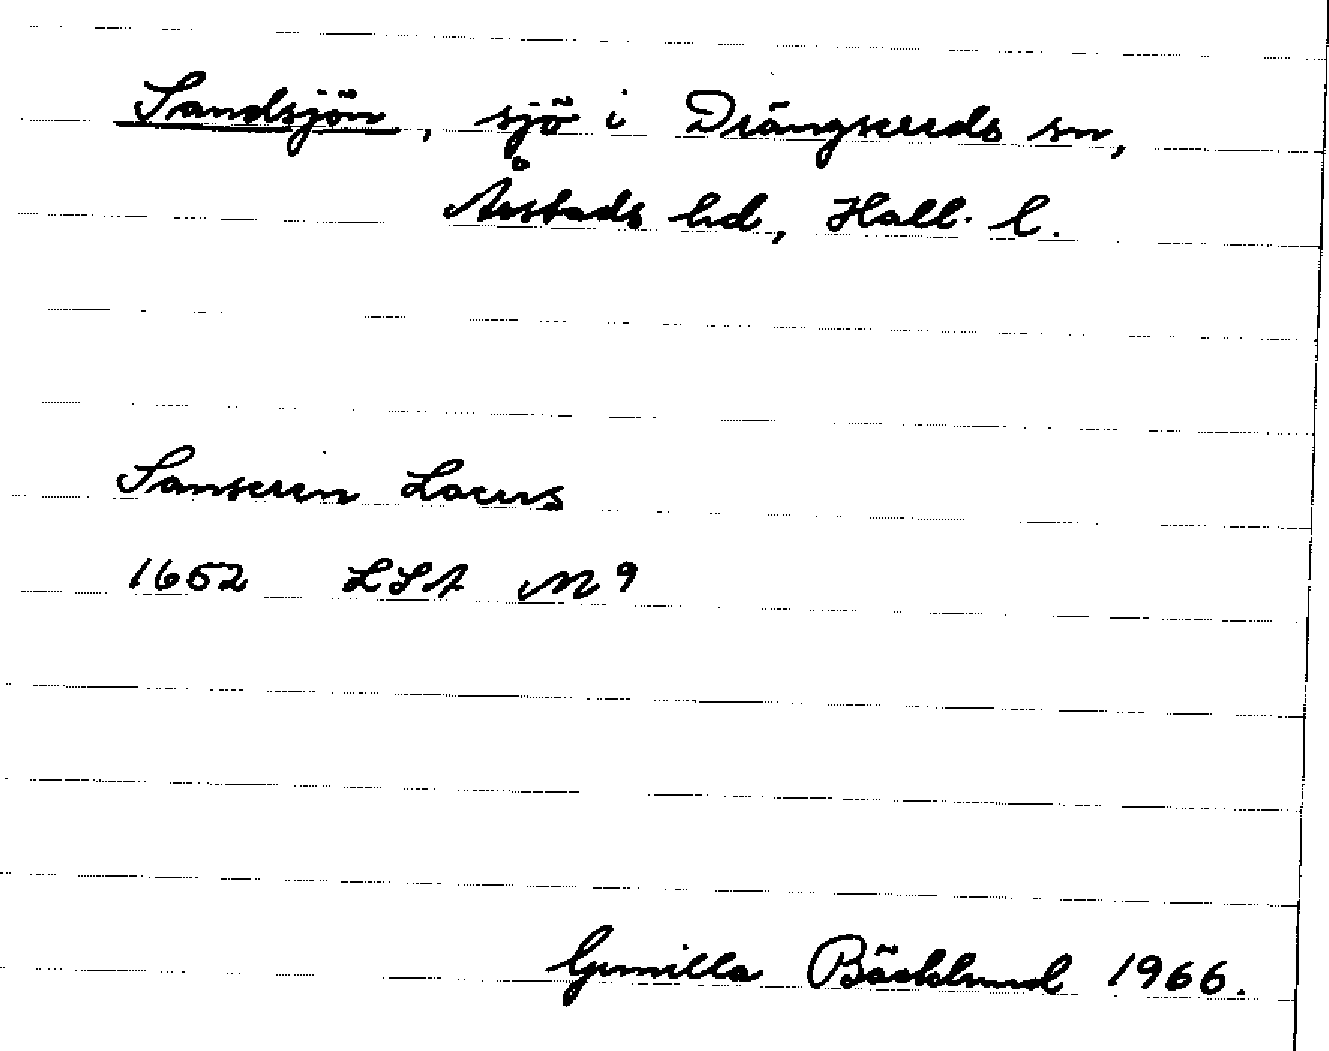 Sandsjön, sjö i Drängsereds sn,
Årstads hd, Hall. l.
Sanseren Lacus
1652 LSA M 9
Gunilla Bäcklund 1966.